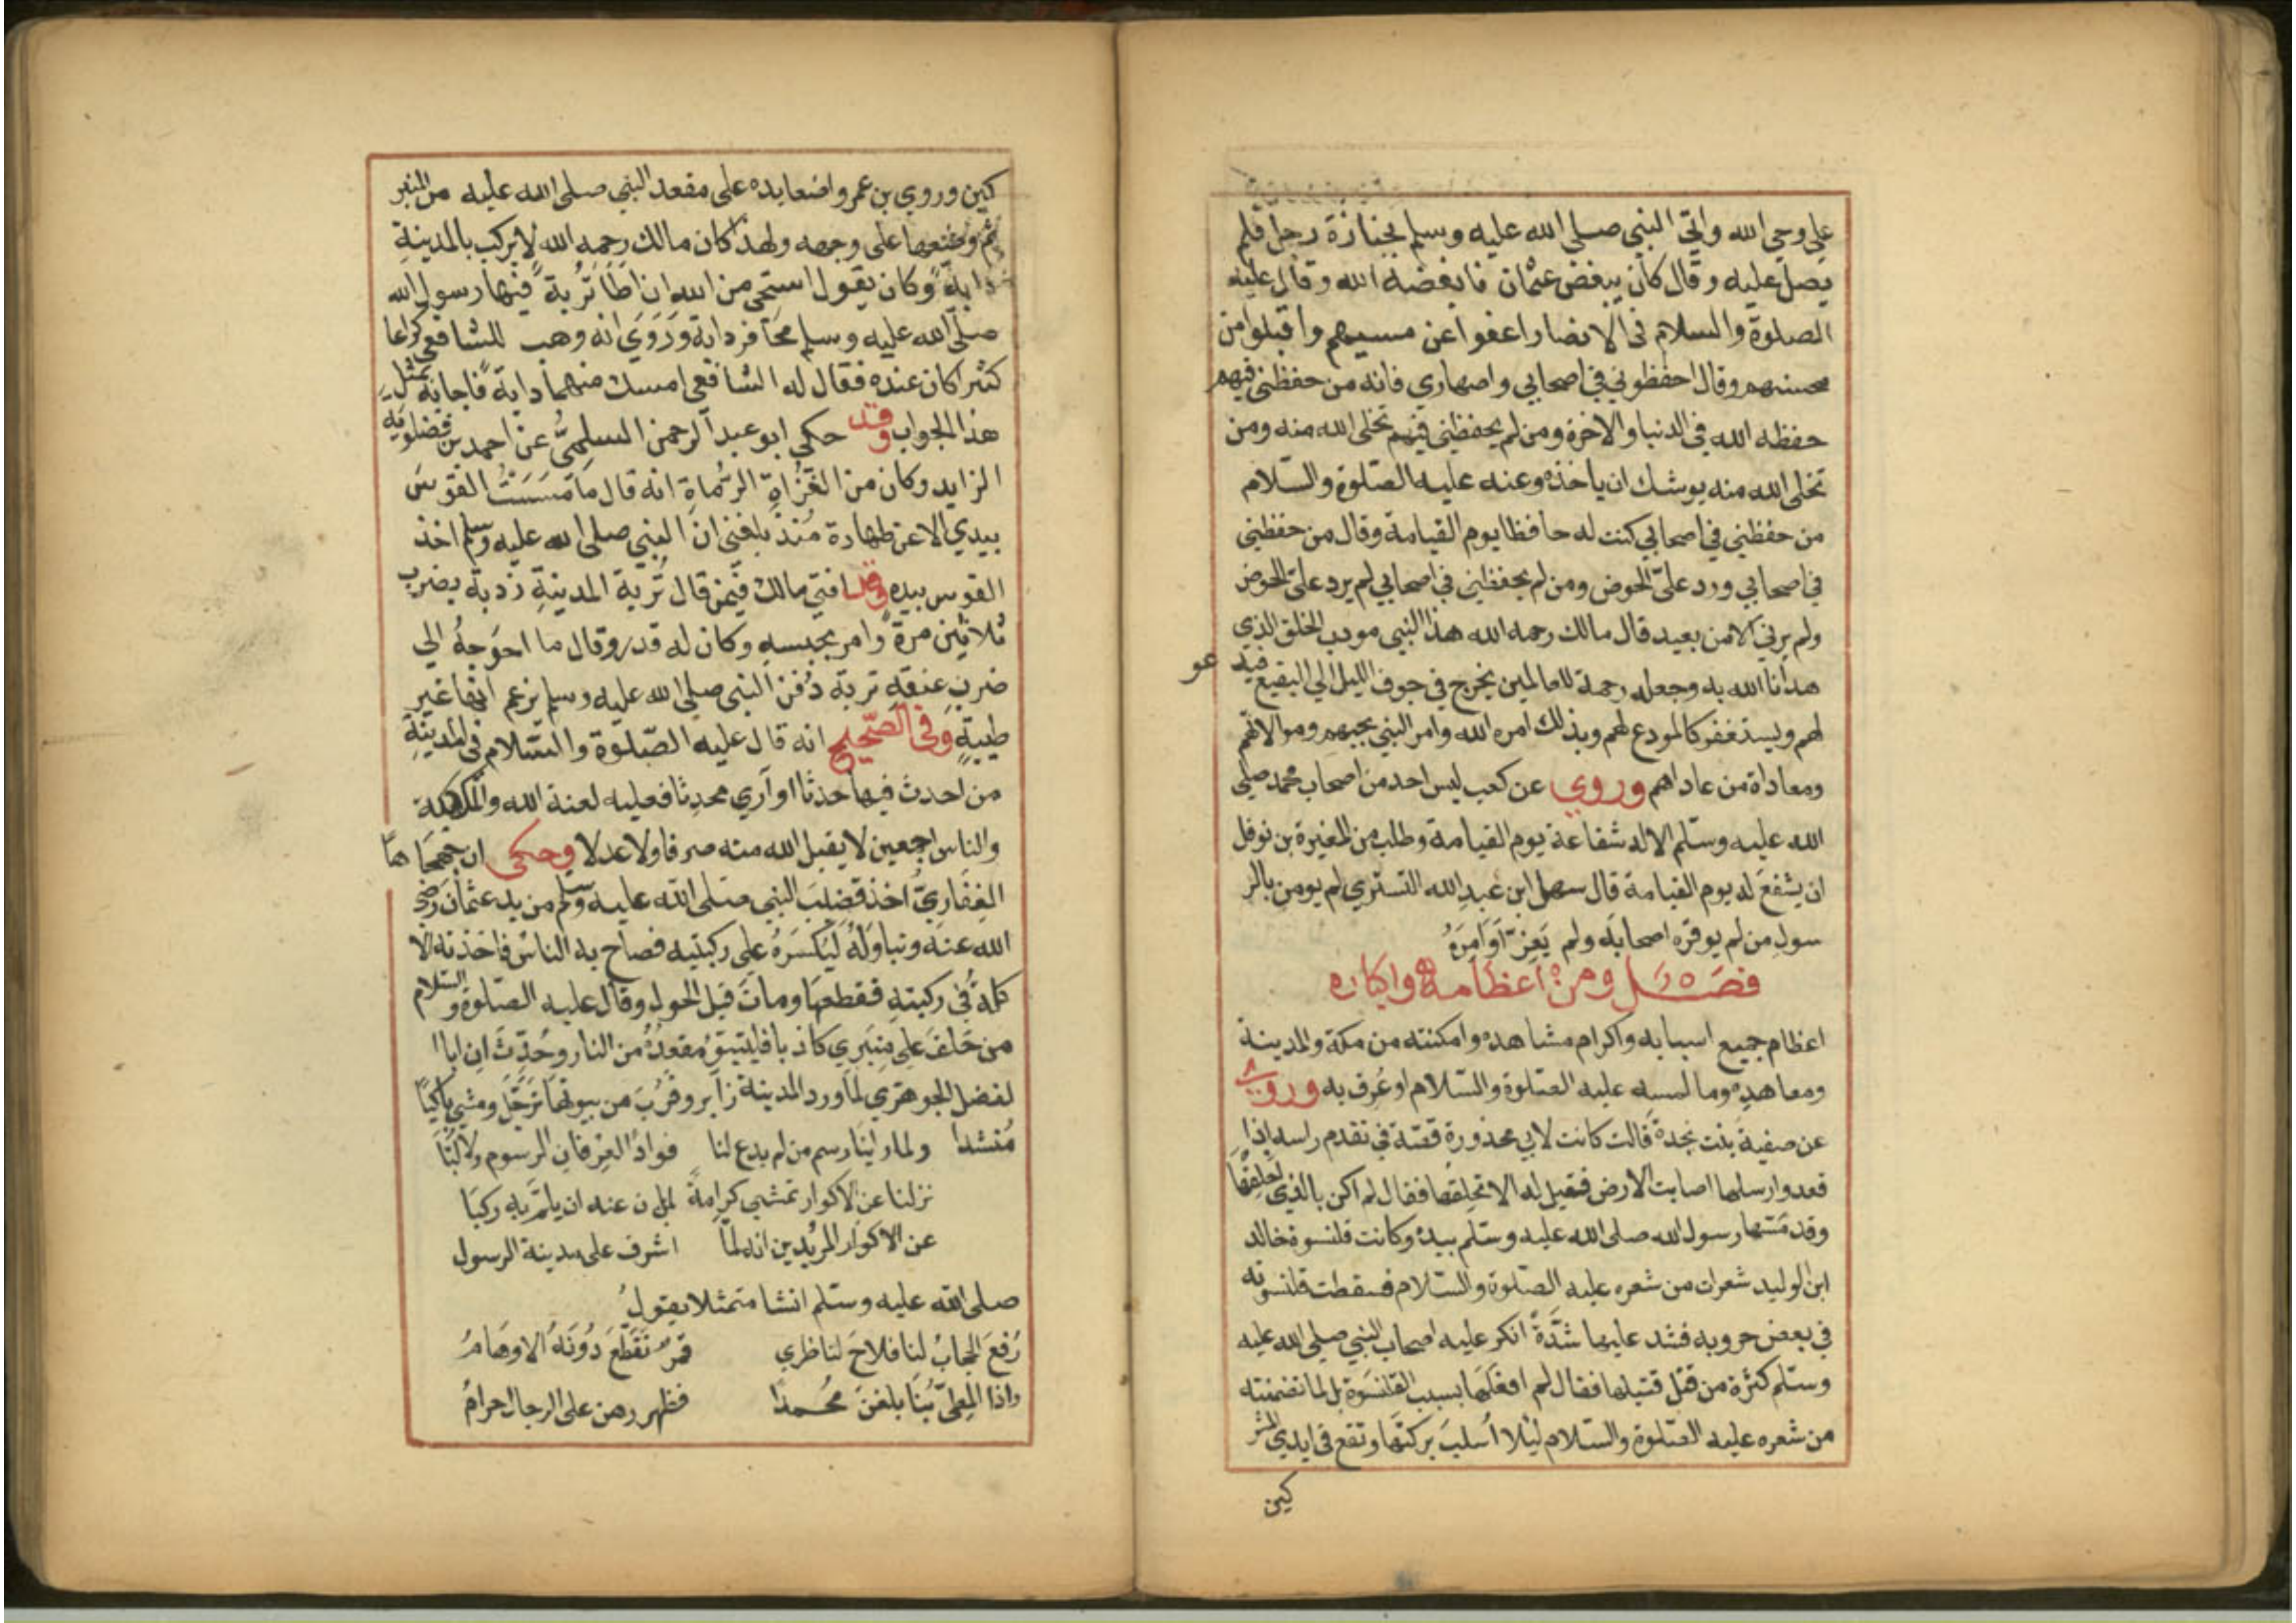 على وحي الله واتي النبي صلى الله عليه وسلم بجنازة رجل فلم
يصل عليه وقال كان يبغض عثمان فابغضه الله وقال عليه
الصلوة والسلام في الانصار اعفوا عن مسيهم واقبلوا من
محسنهم وقال احفظوني في اصحابي واصهاري فانه من حفظني فيهم
حفظه الله في الدنيا والاخرة ومن لم يحفظني فيهم تخلى الله منه ومن
تخلى الله منه يوشك ان ياخذه وعنه عليه الصلوة والسلام
من حفظني في اصحابي كنت له حافظا يوم القيامة وقال من حفظني
في اصحابي ورد علىّ الحوض ومن لم يحفظني في اصحابي لم يرد علىّ الحوض
ولم يرني الا من بعيد قال مالك رحمه الله هذا النبي مودب الخلق الذي
هدانا الله به وجعله رحمة للعالمين يخرج في جوف الليل الي البقيع فيد عو
لهم ويستغفر كالمودع لهم وبذلك امره الله وامر النبي بحبهم وموالاتهم
ومعاداة من عاداهم وروي عن كعب ليس احد من اصحاب محمد صلى
الله عليه وسلم الا له شفاعة يوم القيامة وطلب من المغيرة بن نوفل
ان يشفع له يوم القيامة قال سهل ابن عبد الله التستري لم يومن بالر
سول من لم يوقره اصحابه ولم يعز اوامره
فصل ومن اعظامه واكباره
اعظام جميع اسبابه واكرام مشاهده وامكنته من مكة والمدينة
ومعاهده وما لمسه عليه الصلوة والسلام او عرف به وروي
عن صفية بنت نجدة قالت كانت لابي محذورة قصة في تقدم راسه اذا
قعد وارسلها اصابت الارض فقيل له الا تحلقها فقال لم اكن بالذي احلقها
وقد مسها رسول الله صلى الله عليه وسلم بيده وكانت قلنسوة خالد
ابن الوليد شعرات من شعره عليه الصلوة والسلام فسقطت قلنسوته
في بعض حروبه فشد عليها شدّة انكر عليه اصحاب النبي صلى الله عليه
وسلم كثرة من قتل قتيلها فقال لم افعلها بسبب القلنسوة بل لما تضمنته
من شعره عليه الصلوة والسلام ليلا اسلب بركتها وتقع في ايدي المشر
كين
كين وروي بن عمر واضعا يده على مقعد النبي صلى الله عليه من المنبر
ثم وضعها على وجهه ولهذا كان مالك رحمه الله لا يركب بالمدينة
دابة وكان يقول استحي من الله ان اطا تربة فيها رسول الله
صلى الله عليه وسلم بحافر دابة وروي انه وهب للشافعي كراعا
كثيرا كان عنده فقال له الشافعي امسك منهما دابة فاجابه بمثل
هذا الجواب وقد حكي ابو عبد الرحمن السلمي عن احمد بن فضلويه
الزايد وكان من الغزاة الرماة انه قال ما مسست القوس
بيدي الا عن طهارة منذ بلغني ان النبي صلى الله عليه وسلم اخذ
القوس بيده وقد افتي مالك فيمن قال تربة المدينة ردية يضرب
ثلاثين مرة وامر بحبسه وكان له قدر وقال ما احوجه الي
ضرب عنقه تربة دفن النبي صلى الله عليه وسلم يزعم انها غير
طيبة وفي الصحيح انه قال عليه الصلوة والسلام في المدينة
من احدث فيها حدثا او آري محدثا فعليه لعنة الله والملائكة
والناس اجمعين لا يقبل الله منه صرفا ولا عدلا وحكى ان جهجاها
الغفاري اخذ قضيب النبي صلى الله عليه وسلم من يد عثمان رضي
الله عنه وتناوله ليكسره على ركبتيه فصاح به الناس فاخذته الا
كلة في ركبته فقطعها ومات قبل الحول وقال عليه الصلوة والسلام
من حلف على منبري كاذبا فليتبوّ مقعده من النار وحدّثت ان ابا ا
لفضل الجوهري لما ورد المدينة زاير وقرب من بيوتها ترجّل ومشي باكيًا
منشدا ولما راينا رسم من لم يدع لنا فوادا لعرفان الرسوم ولا لبّا
نزلنا عن الاكوار تمشي كرامةً لمن ن عنه ان يلمّ به ركبا
عن الاكوار المريدين انه لمّا اشرف على مدينة الرسول
صلى الله عليه وسلم انشا متمثلا يقول
رفع الحجاب لنا فلاح لناظري قمر تقطع دونه الاوهام
واذا المطيّ بنا بلغن محمدا فظهورهن على الرجال حرام